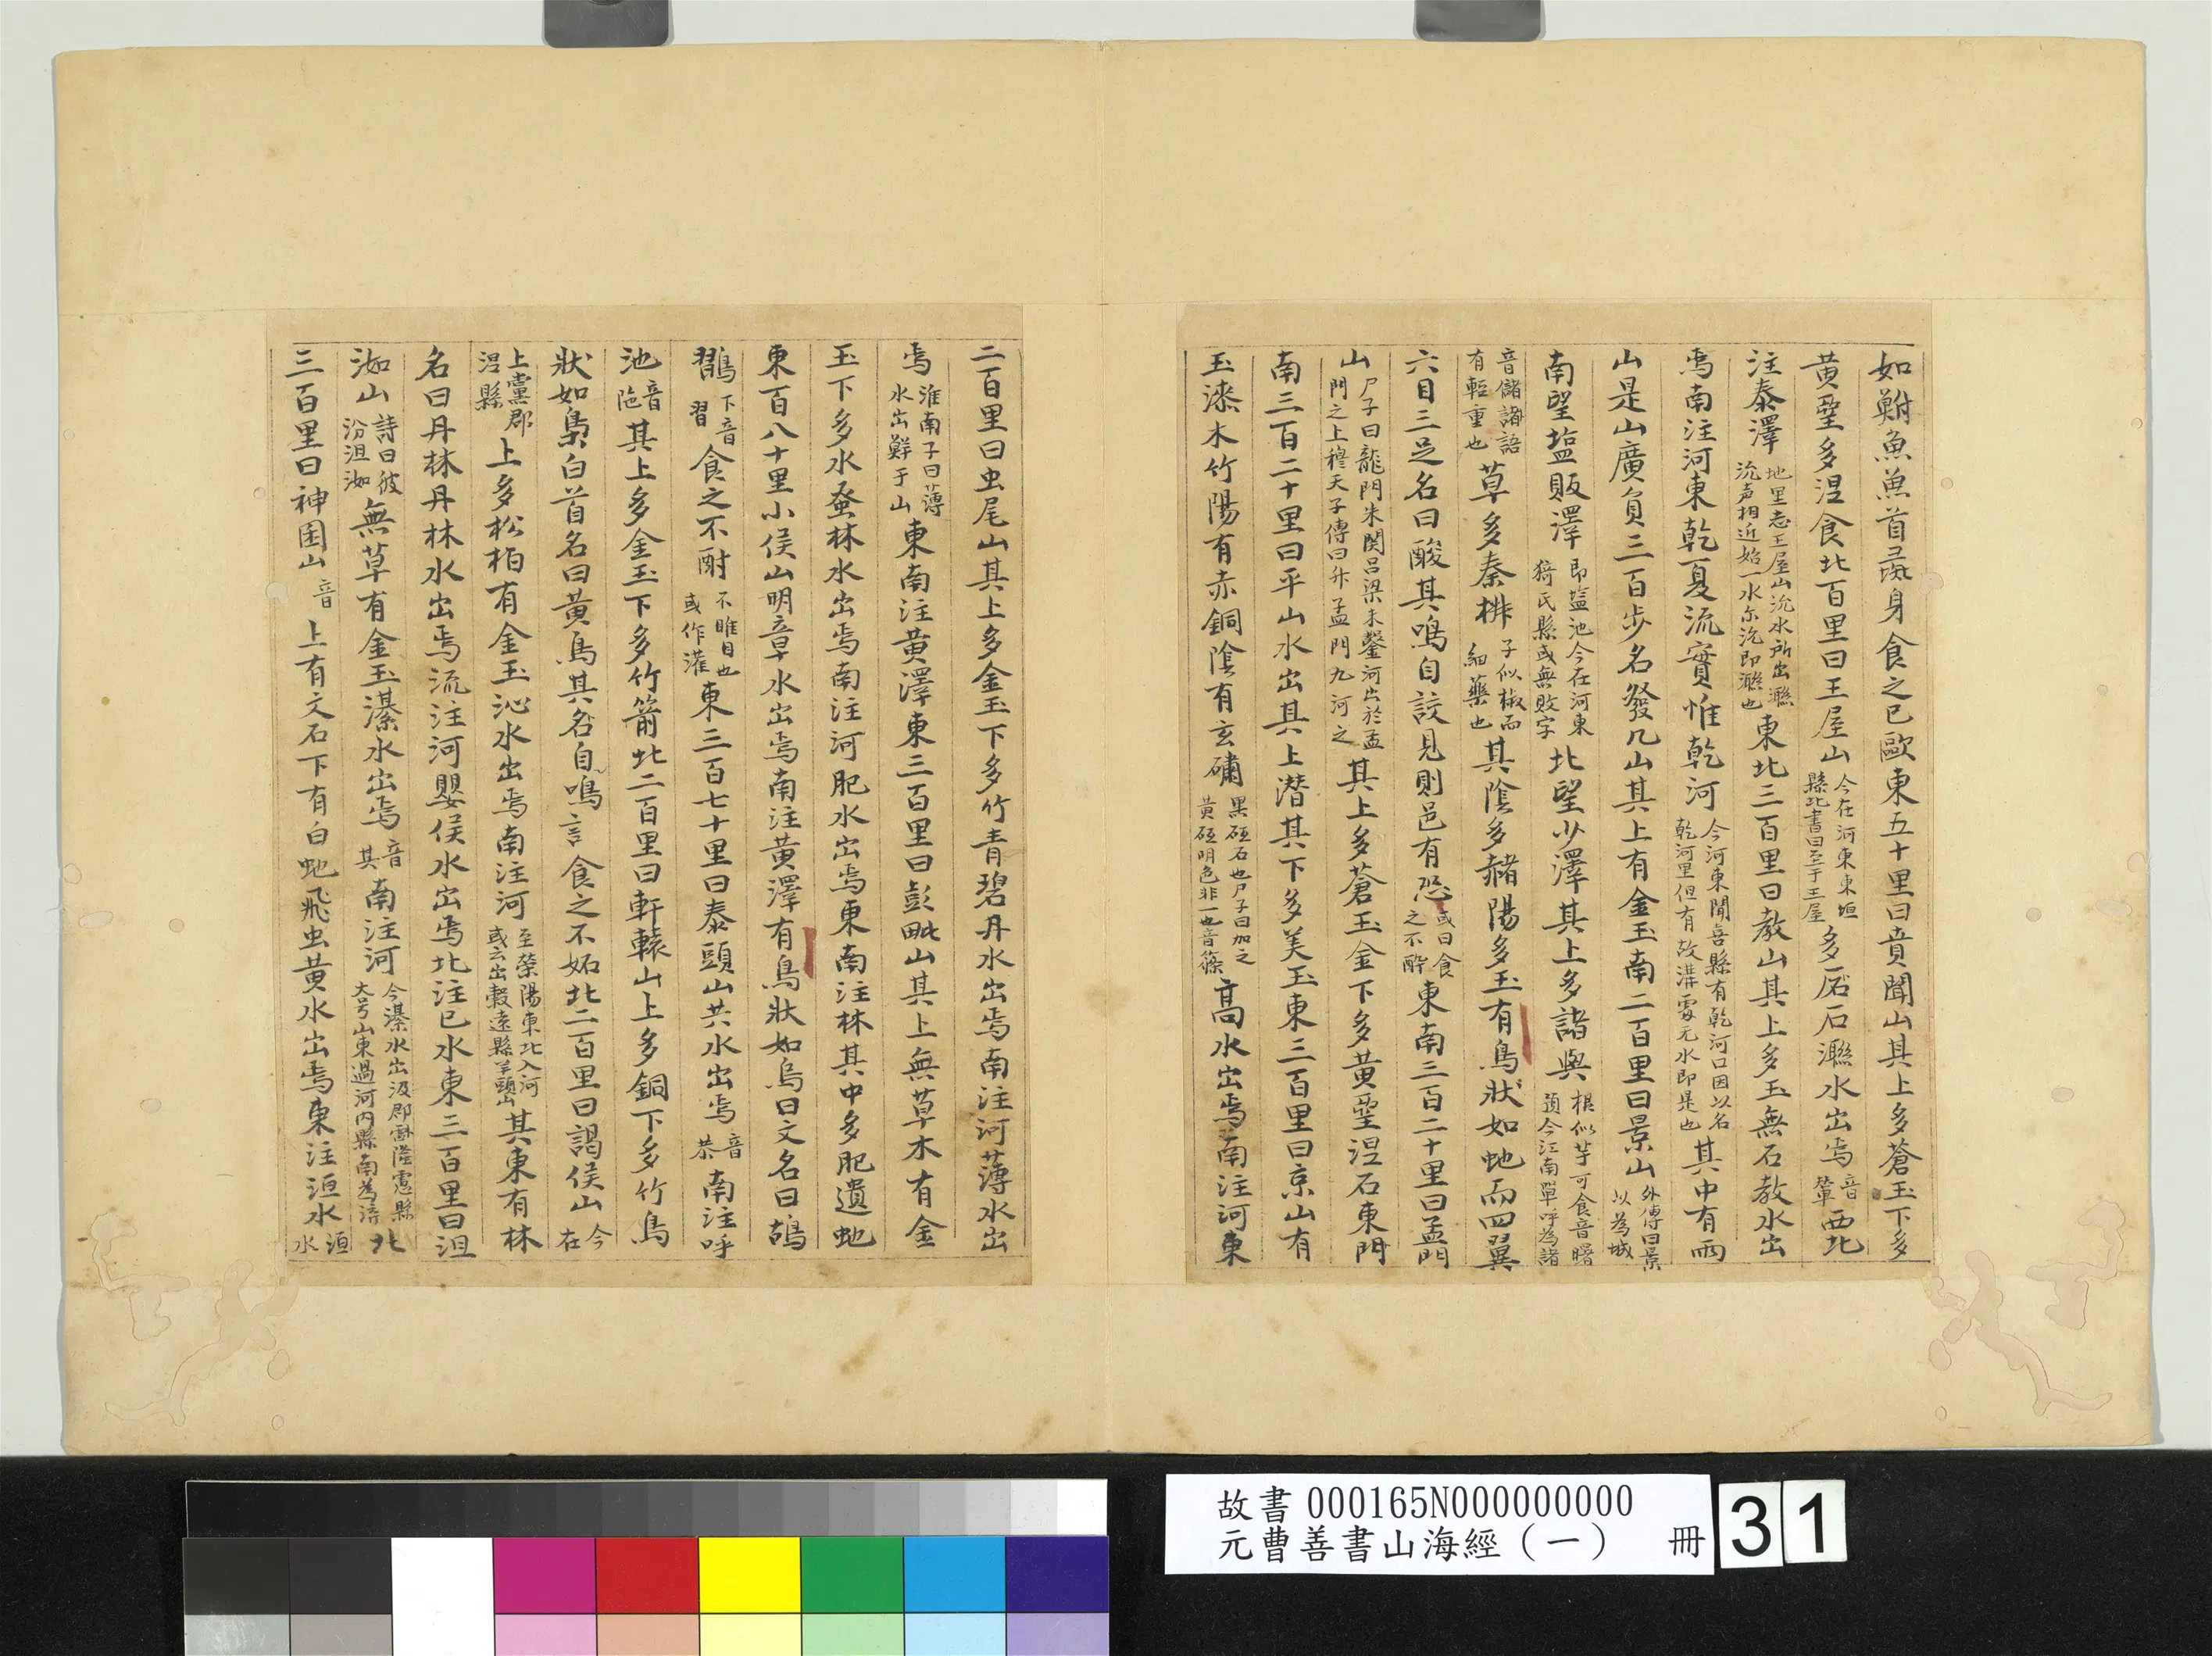 如鮒魚魚首彘身食之已歐東五十里曰賁聞山其上多蒼玉下多
黃堊多涅食北百里曰王屋山今在河東東垣縣北書曰至于王屋多㕄石㶌水出焉音輦西北
注泰澤地里志王屋山沇水所出㶌沇声相近始一水尓沇即㶌也東北三百里曰教山其上多玉無石教水出
焉南注河東乾夏流實惟乾河今河東聞喜縣有乾河口因以名乾河里但有故溝處无水即是也其中有兩
山是山廣負三百步名發几山其上有金玉南二百里曰景山外傳曰景以為城
南望塩販澤即塩池今在河東猗氏縣或無敗字北望少澤其上多諸與根似芋可食音曙預今江南單呼為諸
音儲諸語有輕重也草多秦椒子似椒而細藥也其陰多赭陽多玉有鳥狀如虵而四翼
六目三足名曰酸其鳴自詨見則邑有恐或曰食之不醉東南三百二十里曰孟門
山尸子曰龍門未闢呂梁未鑿河出於孟門之上穆天子傳曰升孟門九河之其上多蒼玉金下多黃堊涅石東門
南三百二十里曰平山水出其上潛其下多美玉東三百里曰京山有
玉漆木竹陽有赤銅陰有玄䃤黑砥石也尸子曰加之黃砥明色非一也音篠高水出焉南注河東
二百里曰虫尾山其上多金玉下多竹青碧丹水出焉南注河薄水出
焉淮南子曰薄水出鮮于山東南注黃澤東三百里曰彭毗山其上無草木有金
玉下多水蚤林水出焉南注河肥水出焉東南注林其中多肥遺虵
東百八十里小侯山明章水出焉南注黃澤有鳥狀如烏曰文名曰鴣
鸐下音習食之不酎不睢目也或作灌東三百七十里曰泰頭山共水出焉音恭南注呼
池音陁其上多金玉下多竹箭北二百里曰軒轅山上多銅下多竹鳥
狀如梟白首名曰黃鳥其名自鳴言食之不妬北二百里曰謁侯山今在
上黨郡涅縣上多松柏有金玉沁水出焉南注河至滎陽東北入河或云出穀遠縣羊頭山其東有林
名曰丹林丹林水出焉流注河嬰侯水出焉北注巳水東三百里曰沮
洳山詩曰彼汾沮洳無草有金玉濝水出焉音其南注河今濝水出汲郡隆慮縣大号山東過河內縣南為淇北
三百里曰神囷山音上有文石下有白虵飛虫黃水出焉東注洹水洹水
故書 000165N000000000
元曹善書山海經（一） 冊 31